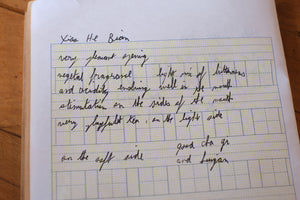 Xiao He Bian
very pleasant opening
vegetal fragrance light mix of bitterness
and acidity enduring well in the mouth
stimulation on the sides of the mouth
very playful tea, on the light side
on the soft side good cha qi
and huigan